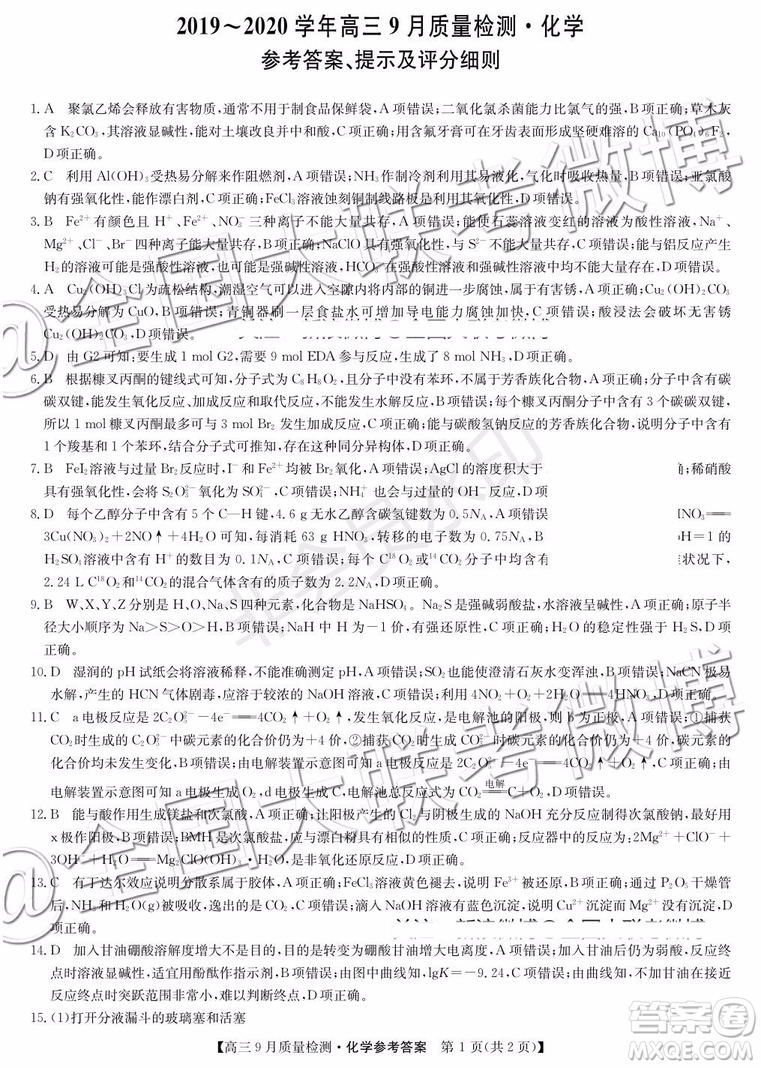 2019～2020学年高三9月质量检测·化学
参考答案、提示及评分细则
1. A 聚氯乙烯会释放有害物质,通常不用于制食品保鲜袋,A项错误;二氧化氯杀菌能力比氯气的强,B项正确;草木灰
含K₂CO₃,其溶液显碱性,能对土壤改良并提供养分,C项正确;用含氟牙膏可在牙齿表面形成更难溶解的Ca₁₀(PO₄)₆F₂,
D项正确。
2. C 利用Al(OH)₃受热易分解来作阻燃剂,A项错误;NH₃作制冷剂利用其易液化,气化时吸收热量,B项错误;亚氯酸
钠有强氧化性,能作漂白剂,C项正确;FeCl₃溶液蚀刻铜制线路板是利用了其氧化性,D项错误。
3. B Fe²⁺有颜色且H⁺、Fe²⁺、NO₃⁻三种离子不能大量共存,A项错误;能使石蕊溶液变红的溶液为酸性溶液,Na⁺、
Mg²⁺、Cl⁻、Br⁻四种离子能大量共存,B项正确;NaClO具有强氧化性,与S²⁻不能大量共存,C项错误;能与铝反应产生
H₂的溶液可能是强酸性溶液,也可能是强碱性溶液,HCO₃⁻在强酸性和强碱性溶液中均不能大量共存,D项错误。
4. A Cu₂(OH)₃Cl为疏松结构,潮湿空气可以进入空隙内将内部的铜进一步腐蚀,属于有害锈,A项正确;Cu₂(OH)₂CO₃
受热易分解为CuO,B项错误;青铜器刷一层食盐水可增加导电能力使腐蚀加快,C项错误;酸浸法会破坏无害锈
Cu₂(OH)₂CO₃,D项错误。
5. D 由G2可知:要生成1 mol G2,需要9 mol EDA参与反应,生成了8 mol NH₃,D项正确。
6. B 根据糠叉丙酮的键线式可知,分子式为C₈H₈O₂,且分子中没有苯环,不属于芳香族化合物,A项错误;分子中含有碳
碳双键,能发生氧化反应、加成反应和取代反应,不能发生水解反应,B项错误;每个糠叉丙酮分子中含有3个碳碳双键,
所以1 mol糠叉丙酮最多可与3 mol Br₂发生加成反应,C项错误;能与碳酸氢钠反应的芳香族化合物,说明分子中含有
1个羧基和1个苯环,结合结构式可知,存在这种同分异构体,D项错误。
7. B FeI₂溶液与过量Br₂反应时,I⁻和Fe²⁺均被Br₂氧化,A项错误;AgCl的溶度积大于
;稀硝酸
具有强氧化性,会将S₂O₃²⁻氧化为SO₄²⁻,C项错误;NH₄⁺也会与过量的OH⁻反应,D项
8. D 每个乙醇分子中含有5个C—H键,4.6 g无水乙醇含碳氢键数为0.5Nₐ,A项错误
NO₃══
3Cu(NO₃)₂+2NO↑+4H₂O可知,每消耗63 g HNO₃,转移的电子数为0.75Nₐ,B项
H=1的
H₂SO₄溶液中含有H⁺的数目为0.1Nₐ,C项错误;每个C¹⁸O₂或¹⁴CO₂分子中均含有
状况下,
2.24 L C¹⁸O₂和¹⁴CO₂的混合气体含有的质子数为2.2Nₐ,D项正确。
9. B W、X、Y、Z分别是H、O、Na、S四种元素,化合物是NaHSO₄。Na₂S是强碱弱酸盐,水溶液呈碱性,A项正确;原子半
径大小顺序为Na＞S＞O＞H,B项错误;NaH中H为-1价,有强还原性,C项正确;H₂O的稳定性强于H₂S,D项正确。
10. D 湿润的pH试纸会将溶液稀释,不能准确测定pH,A项错误;SO₂也能使澄清石灰水变浑浊,B项错误;NaCN极易
水解,产生的HCN气体剧毒,应溶于较浓的NaOH溶液中,C项错误;利用4NO₂+O₂+2H₂O══4HNO₃,D项正确。
11. C a电极反应是2C₂O₅²⁻-4e⁻══4CO₂↑+O₂↑,发生氧化反应,是电解池的阳极,则b为正极,A项错误;①捕获
CO₂时生成的C₂O₅²⁻中碳元素的化合价仍为+4价,②捕获CO₂时生成CO₃²⁻时碳元素的化合价仍为+4价,碳元素的
化合价均未发生变化,B项错误;由电解装置示意图可知a电极反应是2C₂O₅²⁻-4e⁻══4CO₂↑+O₂↑,C项正确;由
电解装置示意图可知a电极生成O₂,d电极生成C,电解池总反应式为CO₂══(电解)C+O₂,D项错误。
12. B 能与酸作用生成镁盐和次氯酸,A项正确;让阳极产生的Cl₂与阴极生成的NaOH充分反应制得次氯酸钠,最好用
x极作阳极,B项错误;BMH是次氯酸盐,应与漂白粉具有相似的性质,C项正确;反应器中的反应为:2Mg²⁺+ClO⁻+
3OH⁻+H₂O══Mg₂ClO(OH)₃·H₂O,是非氧化还原反应,D项正确。
13. C 有丁达尔效应说明分散系属于胶体,A项错误;FeCl₃溶液黄色褪去,说明Fe³⁺被还原,B项错误;通过P₂O₅干燥管
后,NH₃和H₂O(g)被吸收,收集到的气体可能是CO或N₂等,C项正确;滴入NaOH溶液有蓝色沉淀,说明Cu²⁺沉淀而
Mg²⁺没有沉淀,D项错误。
14. D 加入甘油硼酸溶解度增大不是目的,目的是转变为硼酸甘油增大电离度,A项错误;加入甘油后仍为弱酸,滴定终
点时溶液显弱碱性,适宜用酚酞作指示剂,B项错误;由图中曲线可知,lgK=-9.24,C项错误;由曲线知,不加甘油因没
有出现滴定突变,难以判断终点,D项正确。
15. (1)打开分液漏斗的玻璃塞和活塞
【高三9月质量检测·化学参考答案 第1页(共2页)】
@全国大联考微博
@全国大联考微博
非会员水印
答案圈
MXQE.COM